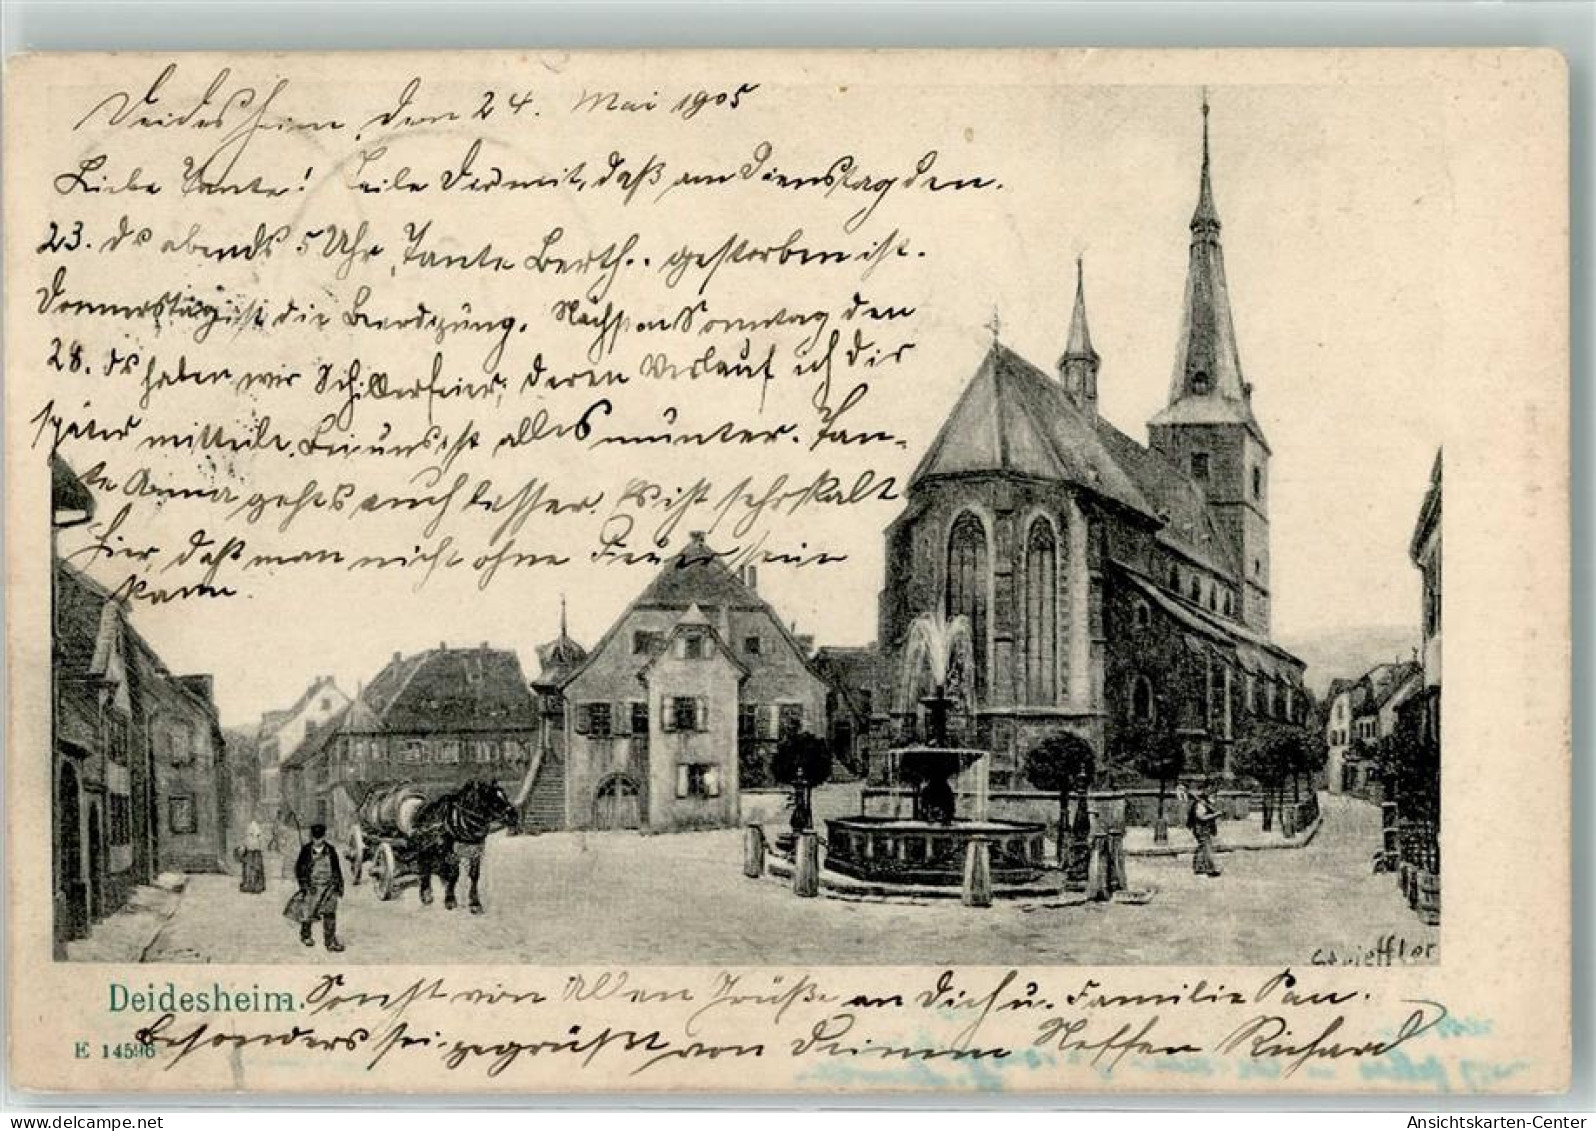 Deidesheim, den 24. Mai 1905
Liebe Tante! Teile Dir mit, daß am Dienstag den.
23. ds abends 5 Uhr, Tante Berth.. gestorben ist.
Donnerstag ist die Beerdigung. Nächsten Sonntag den
28. ds haben wir Schillerfeier, deren Verlauf ich dir
später mitteile. Bei uns ist alles munter. Tan-
te Anna gehts auch besser. Es ist sehr kalt
hier, daß man nicht ohne Feuer sein
kann.
Deidesheim. Sonst von Allen Grüße an Dich u. Familie Pan.
E 14596 Besonders sei gegrüßt von Deinem Neffen Richard
Ansichtskarten-Center